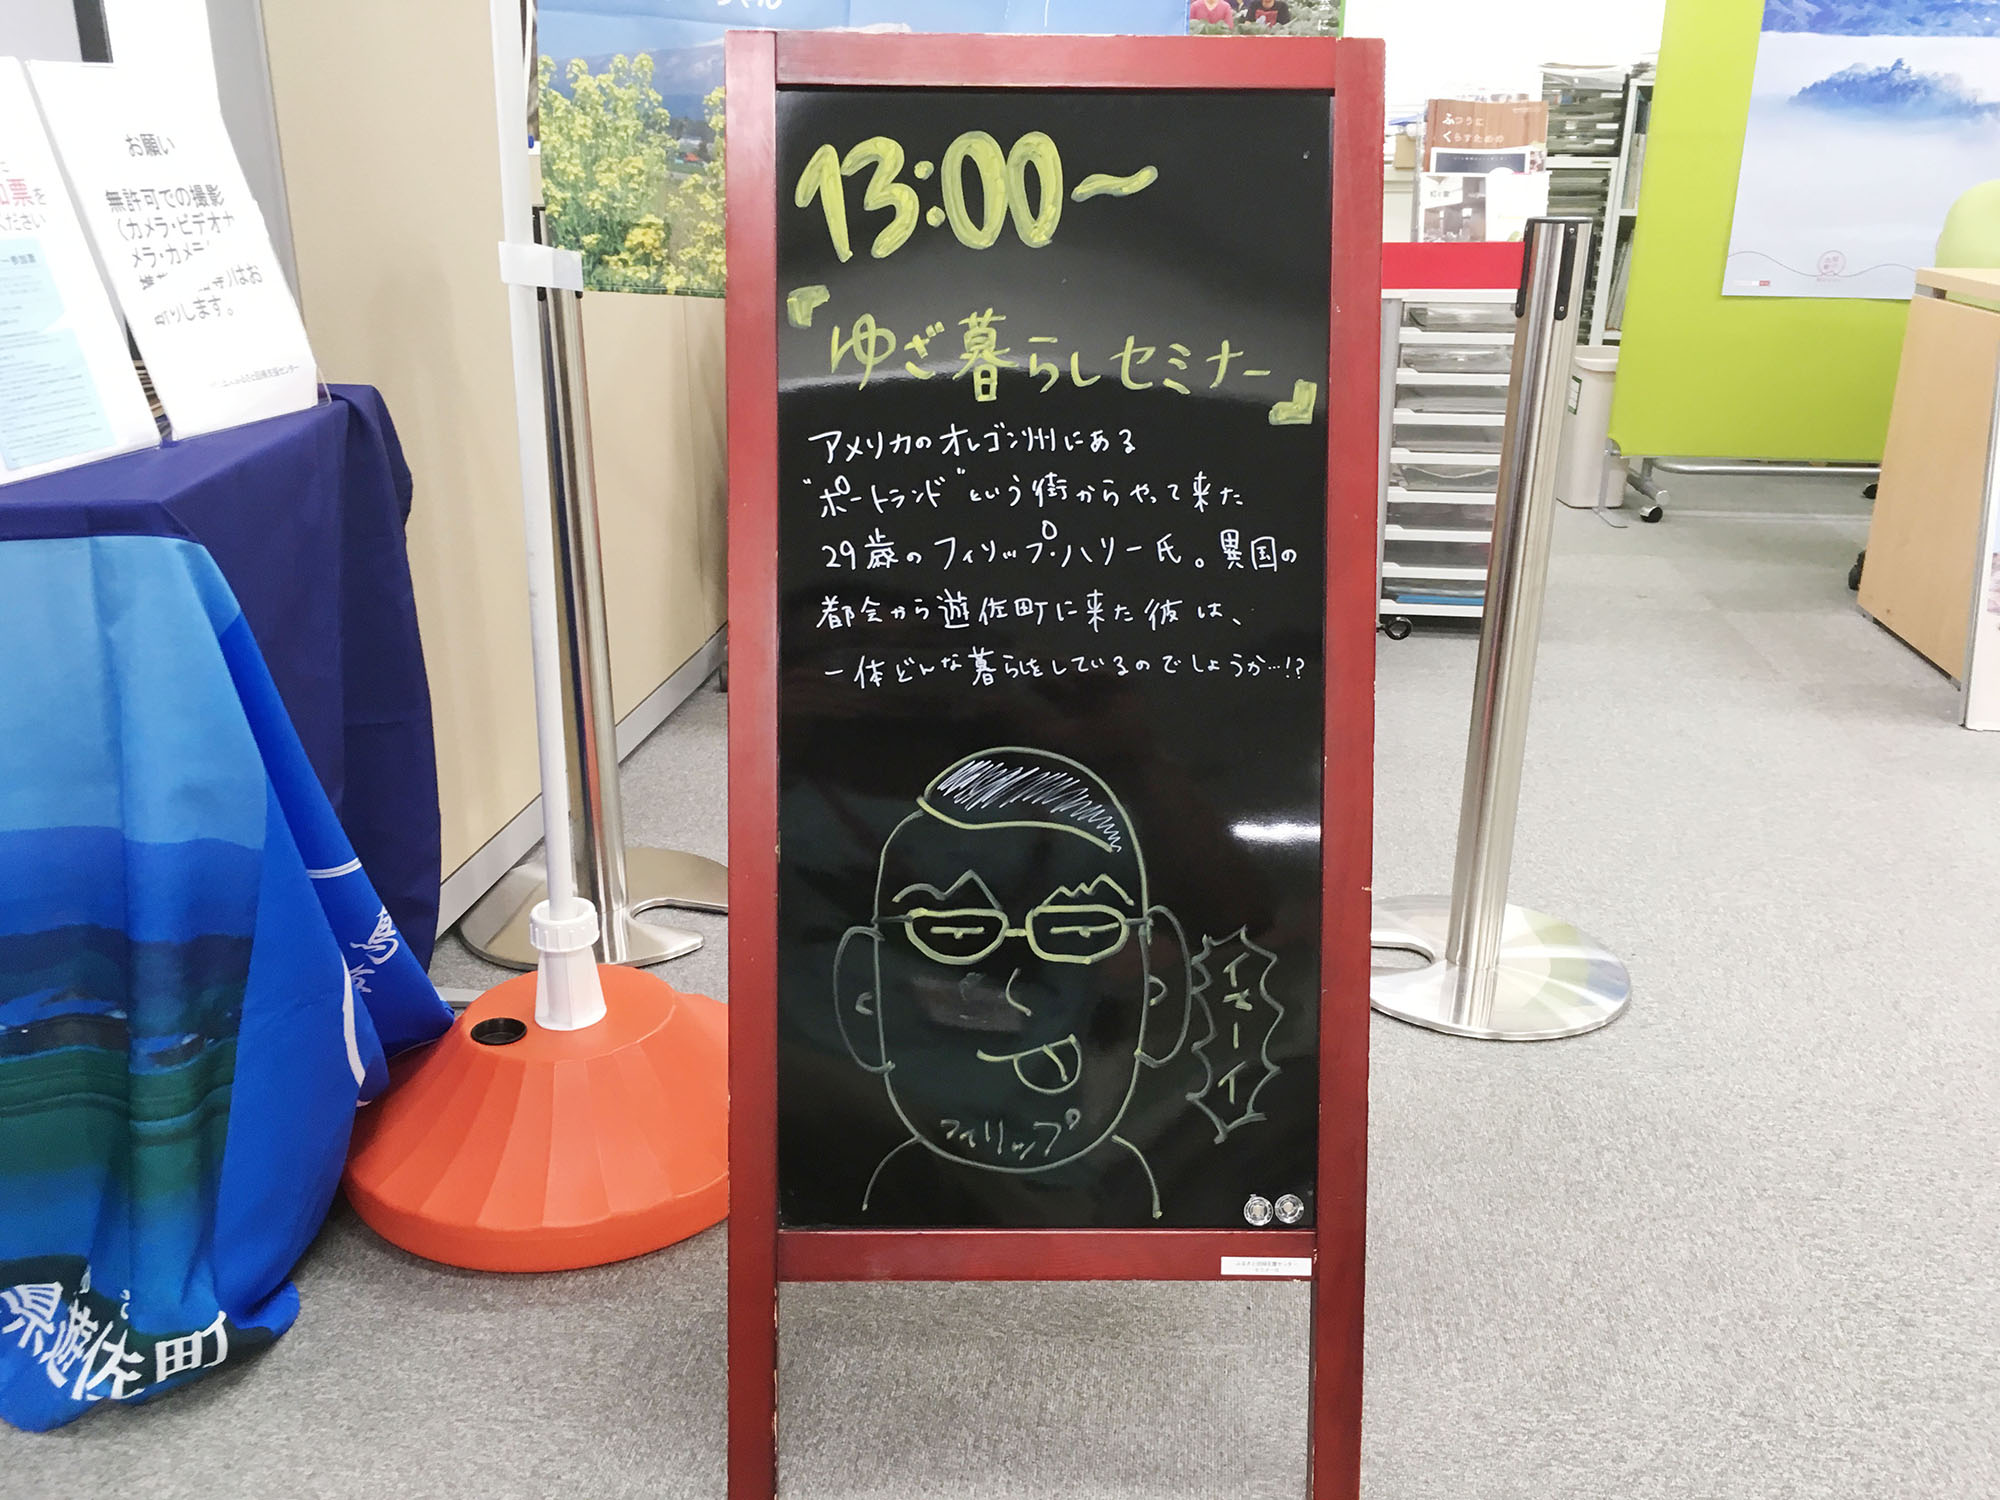 13:00〜
『ゆざ暮らしセミナー』
アメリカのオレゴン州にある
“ポートランド”という街からやって来た
29歳のフィリップ・ハリー氏。異国の
都会から遊佐町に来た彼は、
一体どんな暮らしをしているのでしょうか…!?
イエーイ
フィリップ
ふるさと回帰支援センター
お願い
無許可での撮影
(カメラ・ビデオカ
メラ・カメラ
はお
断りします。
ふるさと回帰支援センター
票を
ください
ふつうに
くらすための
県遊佐町